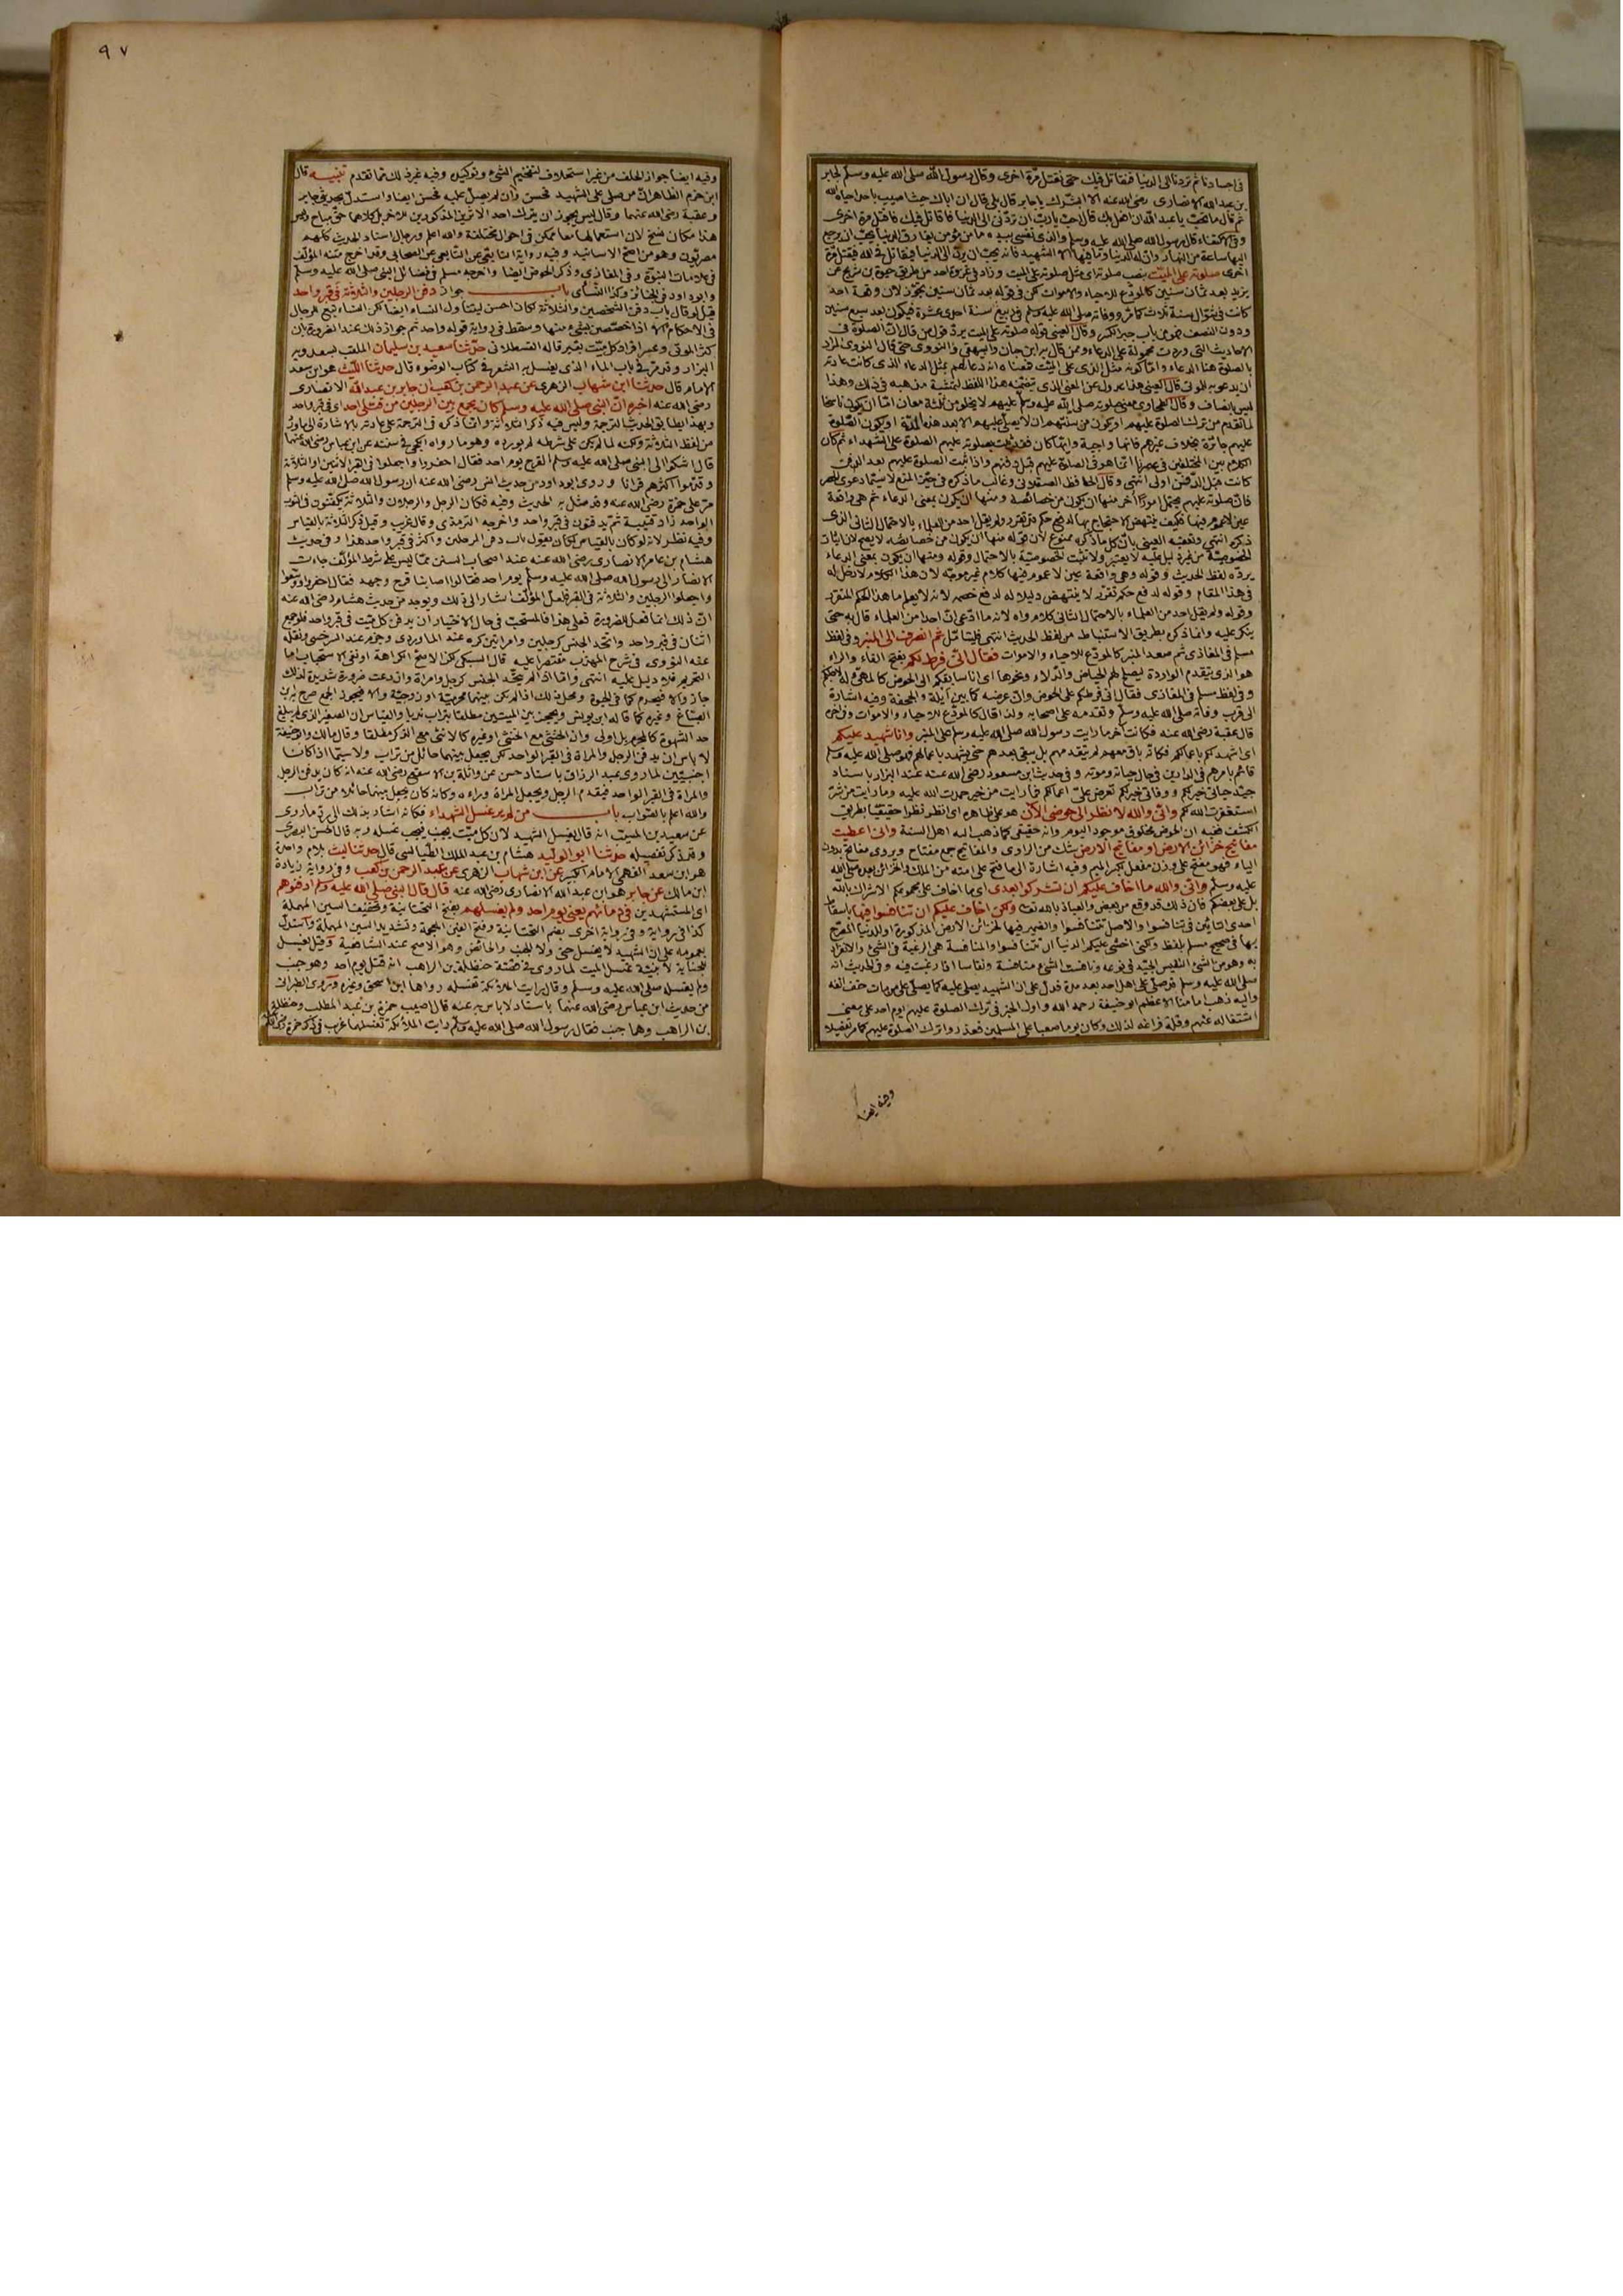 في اجسادنا ثم تردنا الى الدنيا فنقاتل فيك حتى نقتل مرة اخرى وقال رسول الله صلى الله عليه وسلم لجابر
بن عبد الله الانصارى رضى الله عنه الا ابشرك يا جابر قال بلى قال ان اباك حيث اصيب باحد احياه الله
ثم قال ما تحب يا عبد الله ان افعل بك قال احب يا رب ان تردنى الى الدنيا فاقاتل فيك فاقتل مرة اخرى
قال رسول الله صلى الله عليه وسلم والذى نفسى بيده ما من مؤمن يفارق الدنيا يحب ان يرجع
اليها ساعة من النهار وان له الدنيا وما فيها الا الشهيد فانه يحب ان يرد الى الدنيا فيقاتل فى الله فيقتل مرة
اخرى صلوته على الميت بنصب صلوته اى مثل صلوته على الميت وزاد فى غزوة احد من طريق حيوة بن شريح عن
يزيد بعد ثمان سنين كالمودع للاحياء والاموات لكن فى قوله بعد ثمان سنين تجوز لان وقعة احد
كانت فى شوال سنة ثلاث ووفاته صلى الله عليه وسلم فى ربيع سنة احدى عشرة فيكون بعد سبع سنين
ودون النصف فهو من باب جبر الكسر وقال العينى قوله صلوته على الميت يرد قول من قال ان الصلوة فى
الاحاديث التى وردت محمولة على الدعاء وممن قال به ابن حبان والبيهقى والنووى حتى قال النووى المراد
بالصلوة هنا الدعاء واما كونه مثل الذى على الميت فمعناه انه دعا لهم بمثل الدعاء الذى كانت عادته
ان يدعو به للموتى قال العينى هذا عدول عن المعنى الذى يتضمنه هذا اللفظ لتمشية مذهبه فى ذلك وهذا
ليس بانصاف وقال الطحاوى معنى صلوته صلى الله عليه وسلم عليهم لا يخلو من ثلثة معان اما ان يكون ناسخا
لما تقدم من ترك الصلوة عليهم او يكون من سنتهم ان لا يصلى عليهم الا بعد هذه المدة او يكون الصلوة
عليهم جائزة بخلاف غيرهم فانها واجبة وايها كان فقد ثبت بصلوته عليهم الصلوة على الشهداء ثم كان
الكلام بين المختلفين فى عصرنا انما هو فى الصلوة عليهم قبل دفنهم واذا ثبت الصلوة عليهم بعد الدفن
كانت قبل الدفن اولى انتهى وقال الحافظ العسقلانى وغالب ما ذكره فى حيز المنع لا سيما دعوى الحصر
فان صلوته عليهم يحتمل امورا اخر منها ان يكون من خصائصه ومنها ان يكون بمعنى الدعاء ثم هى واقعة
عين لا عموم فيها فكيف ينتهض الاحتجاج بها لدفع حكم قد تقرر ولم يقل احد من العلماء بالاحتمال الثانى الذى
ذكره انتهى وتعقبه العينى بان كل ما ذكره ممنوع لان قوله منها ان يكون من خصائصه لا يصح لان اثبات
الخصوصية من غير دليل عليه لا يعتبر ولا تثبت الخصوصية بالاحتمال وقوله ومنها ان يكون بمعنى الدعاء
يرده لفظ الحديث وقوله وهى واقعة عين لا عموم فيها كلام غير موجه لان هذا الكلام لا دخل له
فى هذا المقام وقوله لدفع حكم تقرر لا ينتهض دليلا له لدفع خصمه لانه لا يعلم ما هذا الحكم المتقرر
وقوله ولم يقل احد من العلماء بالاحتمال الثانى كلام واه لانه ما ادعى ان احدا من العلماء قال به حتى
ينكر عليه وانما ذكره بطريق الاستنباط من لفظ الحديث انتهى فليتأمل ثم انصرف الى المنبر وفى لفظ
مسلم فى المغازى ثم صعد المنبر كالمودع للاحياء والاموات فقال انى فرط لكم بفتح الفاء والراء
هو الذى يتقدم الواردة ليصلح لهم الحياض والدلاء ونحوها اى انا سابقكم الى الحوض كالمهيئ له لاجلكم
وفى لفظ مسلم فى المغازى فقال انى فرطكم على الحوض وان عرضه كما بين ايلة والجحفة وفيه اشارة
الى قرب وفاته صلى الله عليه وسلم وتقدمه على اصحابه ولذا قال كالمودع للاحياء والاموات
قال عقبة رضى الله عنه فكانت اخر ما رايت رسول الله صلى الله عليه وسلم على المنبر وانا شهيد عليكم
اى اشهد لكم باعمالكم فكانه باق معهم لم يتقدمهم بل يبقى بعدهم حتى يشهد باعمالهم فهو صلى الله عليه وسلم
قائم بامرهم فى الدارين فى حال حياته وموته وفى حديث ابن مسعود رضى الله عنه عند البزار باسناد
جيد حياتى خير لكم ووفاتى خير لكم تعرض على اعمالكم فما رايت من خير حمدت الله عليه وما رايت من شر
استغفرت الله لكم وانى والله لانظر الى حوضى الآن هو على ظاهره اى انظر نظرا حقيقيا بطريق
الكشف ففيه ان الحوض مخلوق موجود اليوم وانه حقيقى كما ذهب اليه اهل السنة وانى اعطيت
مفاتيح خزائن الارض او مفاتيح الارض شك من الراوى والمفاتيح جمع مفتاح ويروى مفاتح بدون
الياء فهو مفتح على وزن مفعل بكسر الميم وفيه اشارة الى ما فتح على امته من الملك والخزائن بعده صلى الله
عليه وسلم وانى والله ما اخاف عليكم ان تشركوا بعدى اى ما اخاف على مجموعكم الاشراك بالله
بل على بعضكم فان ذلك قد وقع من بعض والعياذ بالله تعالى ولكن اخاف عليكم ان تنافسوا فيها باسقاط
احدى التائين فى تنافسوا والاصل تتنافسوا والضمير فيها لخزائن الارض المذكورة او للدنيا المصرح
بها فى صحيح مسلم بلفظ ولكنى اخشى عليكم الدنيا ان تتنافسوا والمنافسة هى الرغبة فى الشئ والانفراد
به وهو من الشئ النفيس الجيد فى نوعه ونافست الشئ منافسة ونفاسا اذا رغبت فيه وفى الحديث انه
صلى الله عليه وسلم قد صلى على اهل احد بعد مدة فدل على ان الشهيد يصلى عليه كما يصلى على من مات حتف انفه
واليه ذهب امامنا الاعظم ابو حنيفة رحمه الله واول الخبر فى ترك الصلوة عليهم يوم احد على معنى
اشتغاله عنهم وقلة فراغه لذلك وكان يوما صعبا على المسلمين فعذروا بترك الصلوة عليهم كما مر تفصيلا
وفيه ايضا
٩٧
وفيه ايضا جواز الحلف من غير استحلاف لتفخيم الشئ وتوكيده وفيه غير ذلك مما تقدم تنبيه قال
ابن حزم الظاهرى ان من صلى على الشهيد فحسن وان لم يصل عليه فحسن ايضا واستدل بحديثى جابر
وعقبة رضى الله عنهما وقال ليس يجوز ان يترك احد الاثرين المذكورين للاخر بل كلاهما حق مباح وليس
هذا مكان نسخ لان استعمالهما معا ممكن فى احوال مختلفة والله اعلم ورجال اسناد الحديث كلهم
مصريون وهو من اصح الاسانيد وفيه رواية التابعى عن التابعى عن الصحابى وقد اخرج متنه المؤلف
فى علامات النبوة وفى المغازى وذكر الحوض ايضا واخرجه مسلم فى فضائل النبى صلى الله عليه وسلم
وابو داود فى الجنائز وكذا النسائى باب جواز دفن الرجلين والثلاثة فى قبر واحد
قيل لو قال باب دفن الشخصين والثلاثة لكان احسن ليتناول النساء ايضا لكن النساء تبع للرجال
فى الاحكام الا اذا خصصن بشئ منها وسقط فى رواية قوله واحد ثم جواز ذلك عند الضرورة بان
كثر الموتى وعسر افراد كل ميت بقبر قاله القسطلانى حدثنا سعيد بن سليمان الملقب بسعدويه
البزاز وقد مر فى باب الماء الذى يغسل به الشعر فى كتاب الوضوء قال حدثنا الليث هو ابن سعد
الامام قال حدثنا ابن شهاب الزهرى عن عبد الرحمن بن كعب ان جابر بن عبد الله الانصارى
رضى الله عنه اخبره ان النبى صلى الله عليه وسلم كان يجمع بين الرجلين من قتلى احد اى فى قبر واحد
وبهذا يطابق الحديث الترجمة وليس فيه ذكر الثلاثة وانما ذكره فى الترجمة على عادته بالاشارة الى ما ورد
من لفظ الثلاثة ولكنه لما لم يكن على شرطه لم يورده وهو ما رواه فى سننه عن ابن عباس رضى الله عنهما
قال اشتكوا الى النبى صلى الله عليه وسلم القرح يوم احد فقال احفروا واجعلوا فى القبر الاثنين او الثلاثة
وقدموا اكثرهم قرانا وروى ابو داود من حديث انس رضى الله عنه ان رسول الله صلى الله عليه وسلم
مر على حمزة رضى الله عنه وقد مثل به الحديث وفيه فكان الرجل والرجلان والثلاثة يكفنون فى الثوب
الواحد زاد قتيبة ثم يدفنون فى قبر واحد واخرجه الترمذى وقال غريب وقيل ذكر الثلاثة بالقياس
وفيه نظر لانه لو كان بالقياس لكان يقول باب دفن الرجلين واكثر فى قبر واحد هذا وفى حديث
هشام بن عامر الانصارى رضى الله عنه عند اصحاب السنن مما ليس على شرط المؤلف جاءت
الانصار الى رسول الله صلى الله عليه وسلم يوم احد فقالوا اصابنا قرح وجهد فقال احفروا ووسعوا
واجعلوا الرجلين والثلاثة فى القبر فلعل المؤلف اشار الى ذلك ويوخذ من حديث هشام رضى الله عنه
ان ذلك انما فعل للضرورة فعلى هذا فالمستحب فى حال الاختيار ان يدفن كل ميت فى قبر واحد فلو جمع
اثنان فى قبر واحد واتحد الجنس كرجلين وامراتين كره عند الماوردى وحرم عند السرخسى ونقله
عنه النووى فى شرح المهذب مقتصرا عليه قال السبكى لكن الاصح الكراهة او نفى الاستحباب اما
التحريم فلا دليل عليه انتهى واما اذا لم يتحد الجنس كرجل وامراة وان دعت ضرورة شديدة لذلك
جاز والا فيحرم كما فى الحيوة ومحل ذلك اذا لم يكن بينهما محرمية او زوجية والا فيجوز الجمع صرح به ابن
الصباغ وغيره كما قاله ابن يونس ويحجز بين الميتين مطلقا بتراب ندبا والقياس ان الصغير الذى لم يبلغ
حد الشهوة كالمحرم بل اولى وان الخنثى مع الخنثى او غيره كالانثى مع الذكر مطلقا وقال مالك وابو حنيفة
لا باس ان يدفن الرجل والمراة فى القبر الواحد لكن يجعل بينهما حائل من تراب ولا سيما اذا كانا
اجنبيين لما روى عبد الرزاق باسناد حسن عن واثلة بن الاسقع رضى الله عنه انه كان يدفن الرجل
والمراة فى القبر الواحد فيقدم الرجل ويجعل المراة وراءه وكانه كان يجعل بينهما حائلا من تراب
والله اعلم بالصواب باب من لم ير غسل الشهداء فكانه اشار بذلك الى رد ما روى
عن سعيد بن المسيب انه قال يغسل الشهيد لان كل ميت يجنب فيجب غسله وبه قال الحسن البصرى
وقد ذكر تفصيله حدثنا ابو الوليد هشام بن عبد الملك الطيالسى قال حدثنا ليث بلام واحدة
هو ابن سعد الفهمى الامام الكبير عن ابن شهاب الزهرى عن عبد الرحمن بن كعب وفى رواية زيادة
ابن مالك عن جابر هو ابن عبد الله الانصارى رضى الله عنه قال قال النبى صلى الله عليه وسلم ادفنوهم
اى المستشهدين فى دمائهم يعنى يوم احد ولم يغسلهم بفتح التحتانية وتخفيف السين المهملة
كذا فى رواية وفى رواية اخرى بضم التحتانية وفتح الغين المعجمة وتشديد السين المهملة واستدل
بعمومه على ان الشهيد لا يغسل حتى ولا الجنب والحائض وهو الاصح عند الشافعية وقيل يغسل
للجنابة لا بنية غسل الميت لما روى فى قصة حنظلة بن الراهب انه قتل يوم احد وهو جنب
ولم يغسله صلى الله عليه وسلم وقال رايت الملائكة تغسله رواها ابن اسحق وغيره وروى الطبرانى
من حديث ابن عباس رضى الله عنهما باسناد لا باس به عنه قال اصيب حمزة بن عبد المطلب وحنظلة
بن الراهب وهما جنب فقال رسول الله صلى الله عليه وسلم رايت الملائكة تغسلهما غريب فى ذكر حمزة